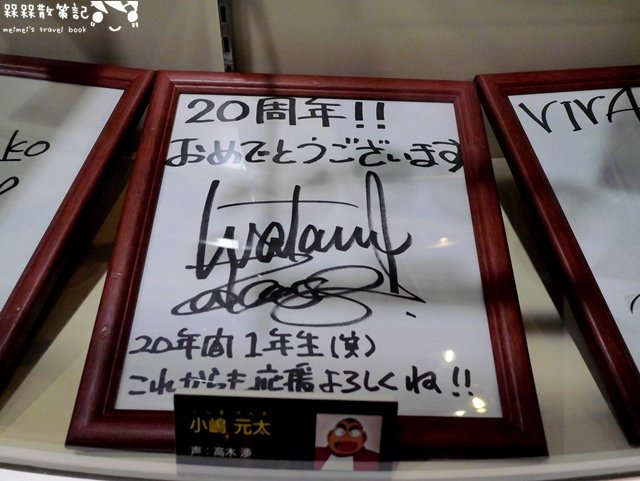 槑槑散策記
meimei's travel book
20周年!!
おめでとうございます
20年間1年生(笑)
これからも応援よろしくね!!
こじまげんた
小嶋 元太
声:高木 渉
KO
VIVA